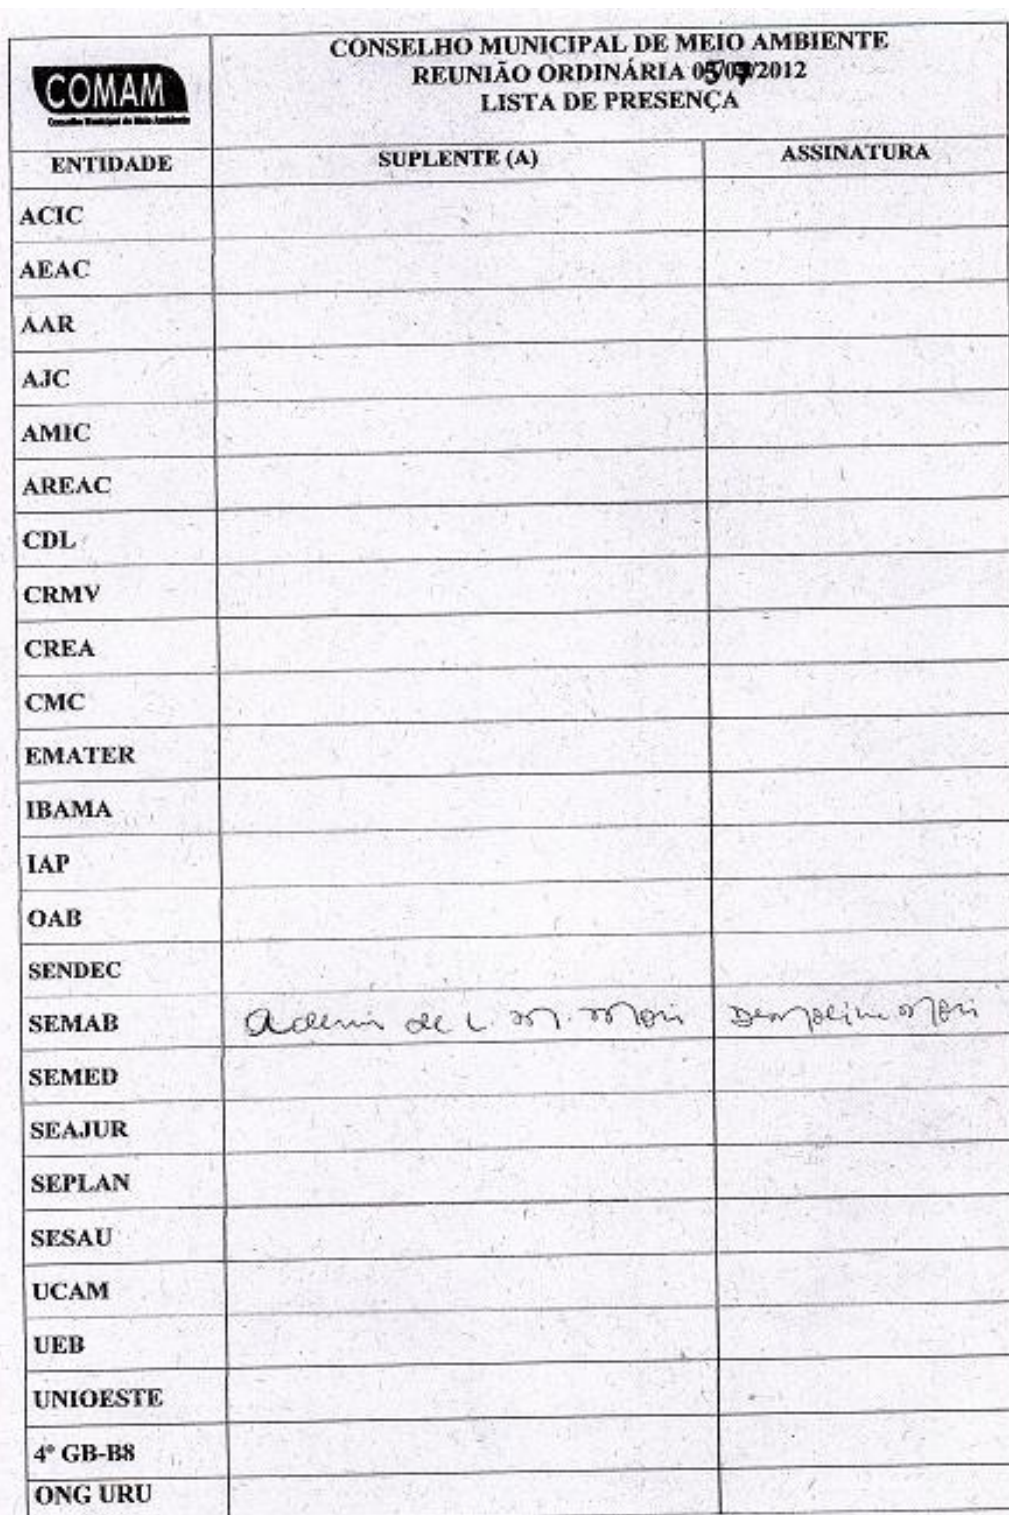 COMAM
Conselho Municipal de Meio Ambiente
CONSELHO MUNICIPAL DE MEIO AMBIENTE
REUNIÃO ORDINÁRIA 05/07/2012
LISTA DE PRESENÇA
ENTIDADE SUPLENTE (A) ASSINATURA
ACIC
AEAC
AAR
AJC
AMIC
AREAC
CDL
CRMV
CREA
CMC
EMATER
IBAMA
IAP
OAB
SENDEC
SEMAB de L. M.
SEMED
SEAJUR
SEPLAN
SESAU
UCAM
UEB
UNIOESTE
4º GB-B8
ONG URU